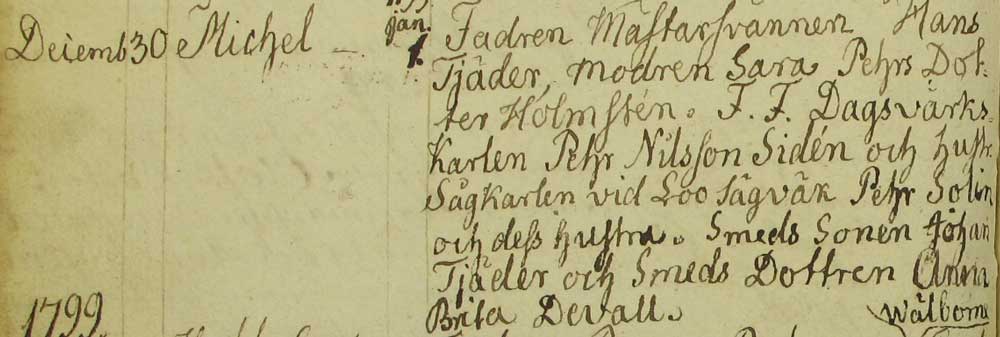 Decemb 30 Michel - 1799 jan. 1. Fadren Mästarsvännen Hans
Tjäder, Modren Sara Pehrs Dot-
ter Holmstén. F. F. Dagsvärks-
Karlen Pehr Nilsson Sidén och hustr.
Sågkarlen vid Loo Sågvärk Pehr Solin
och dess hustru. Smeds Sonen Johan
Tjäder och Smeds Dottren Anna
Brita Devall. Wälborne
1799